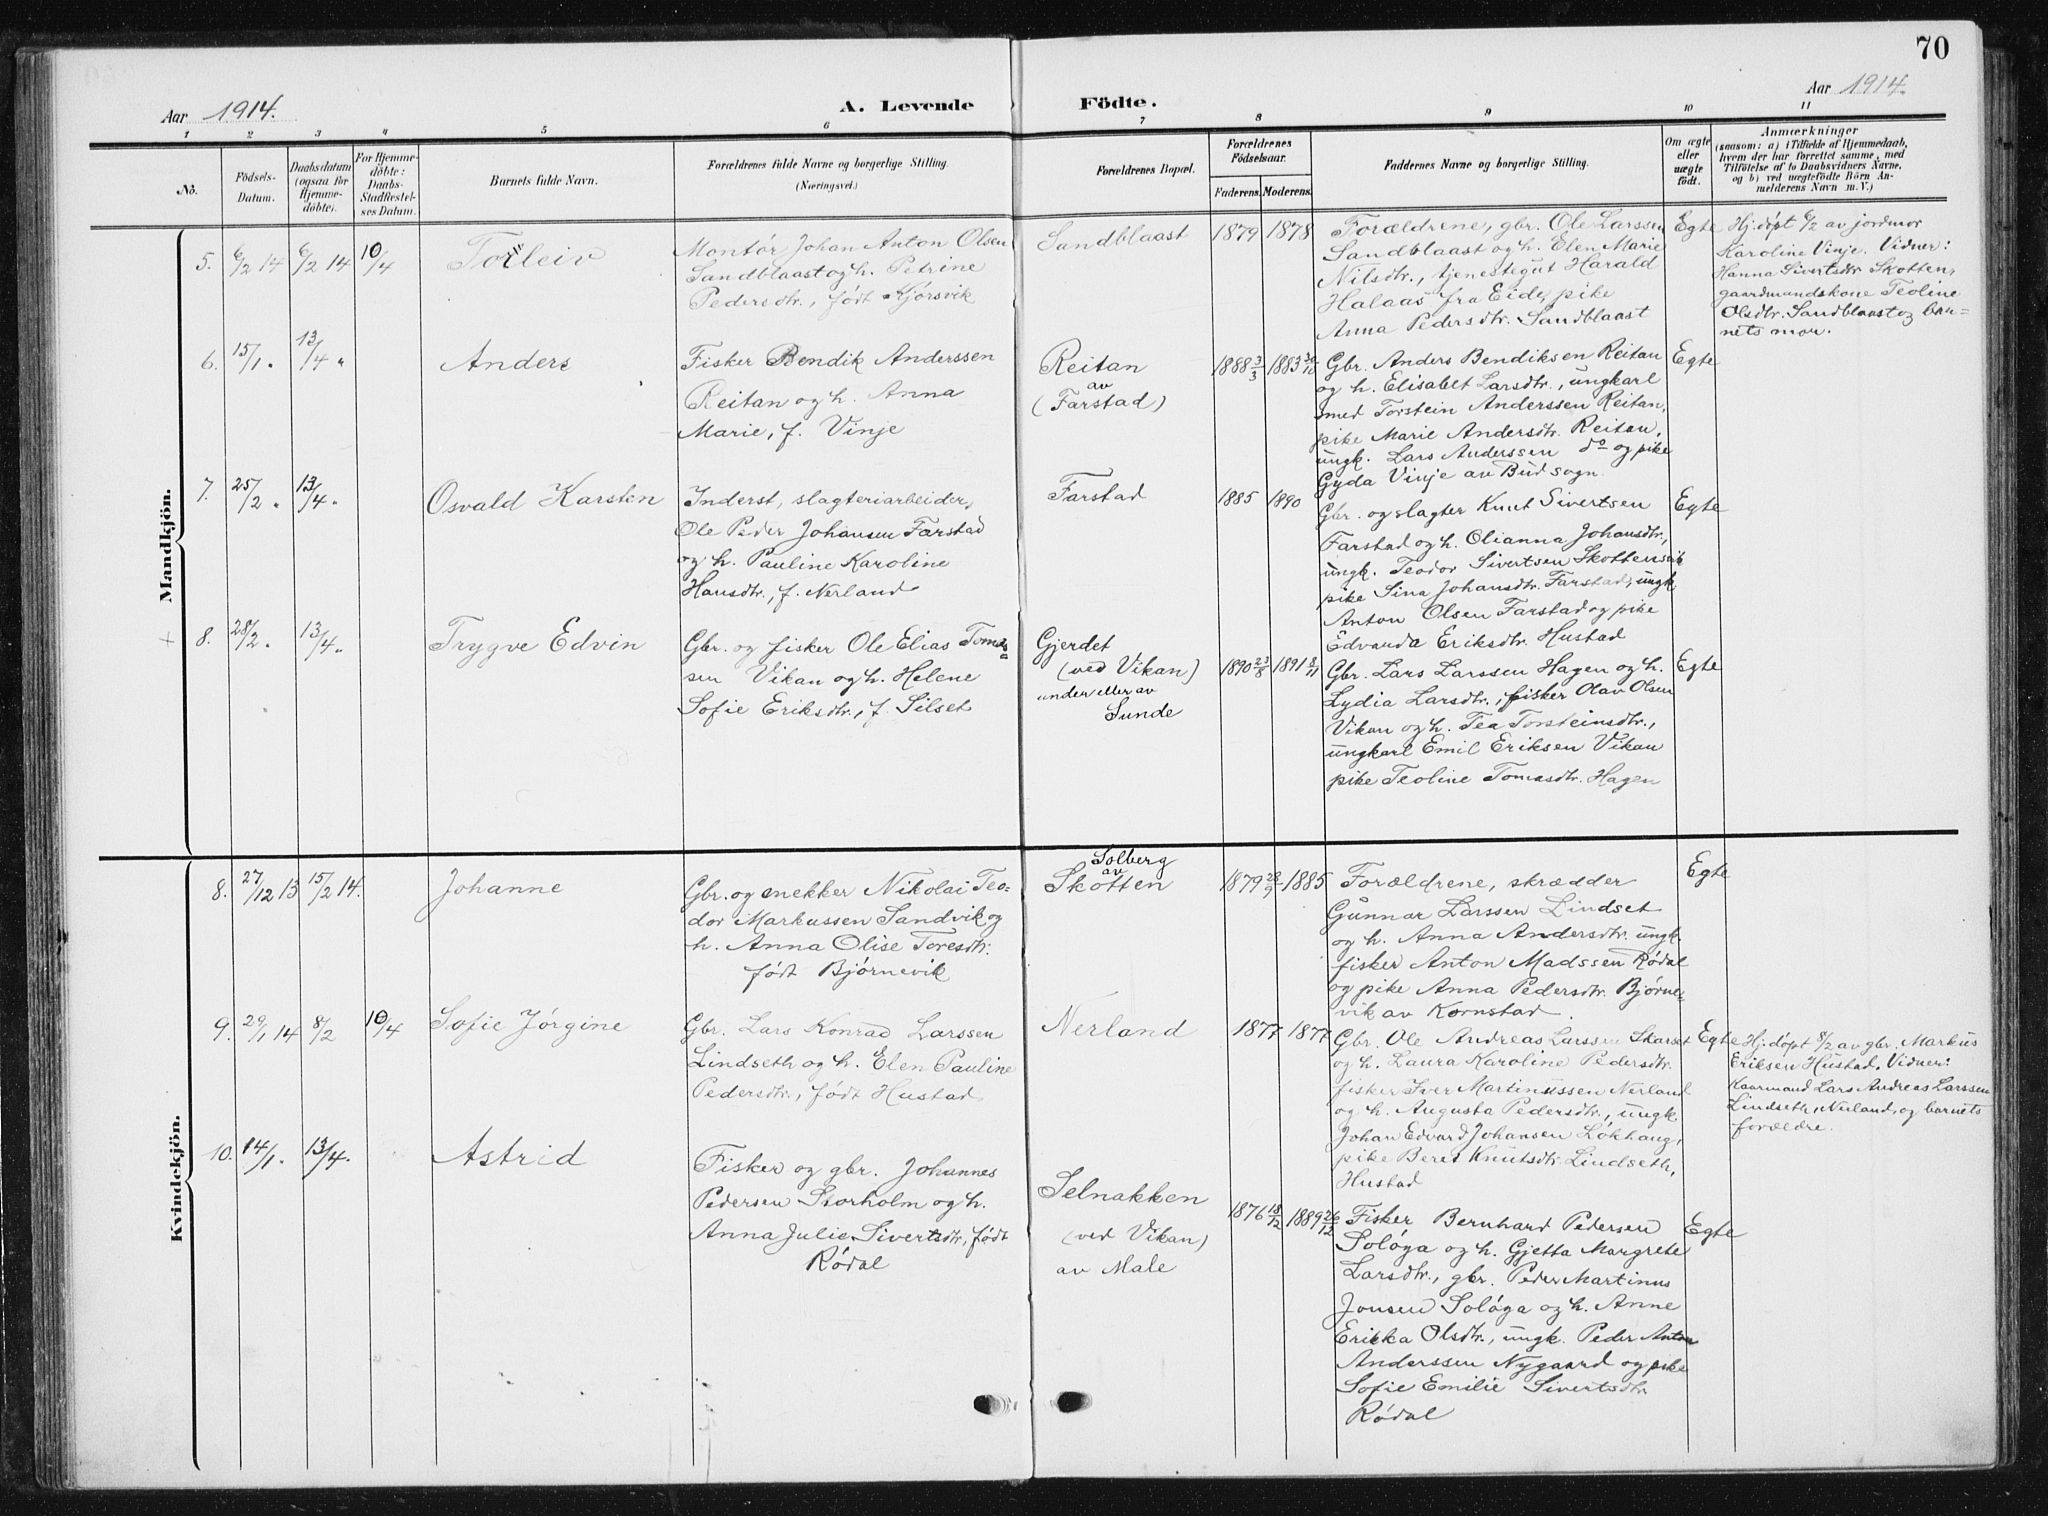 70
Aar 1914.
A. Levende Födte.
Aar 1914.
1 2 3 4 5 6 7 8 9 10 11
No.
Födsels-Datum.
Daabsdatum (ogsaa for Hjemme-döbte).
For Hjemme-döbte: Daabs-Stadfæstel-ses Datum.
Barnets fulde Navn.
Forældrenes fulde Navne og borgerlige Stilling.
(Næringsvei.)
Forældrenes Bopæl.
Forældrenes Födselsaar.
Faderens. Moderens.
Faddernes Navne og borgerlige Stilling.
Om ægte eller uægte födt.
Anmærkninger
(saasom: a) i Tilfælde af Hjemmedaab, hvem der har forrettet samme, med Tilföielse af to Daabsvidners Navne. og b) ved uægtefödte Börn An-melderens Navn m. V.)
Mandkjön.
5. 6/2 14 6/2 14 10/4 Torleiv
Montør Johan Anton Olsen
Sandblaast og h. Petrine
Pedersdtr., født Kjørsvik
Sandblaast
1879 1878
Forældrene, gbr. Ole Larssen
Sandblaast og h. Elen Marie
Nilsdtr., tjenestegut Harald
Halaas fra Eide, pike
Anna Pedersdtr. Sandblaast
Egte
Hj.døpt 6/2 av jordmor
Karoline Vinje. Vidner:
Hanna Sivertsdtr. Skotten,
gaardmandskone Teoline
Olsdtr. Sandblaast og bar=
nets mor.
6. 15/1 " 13/4 " Anders
Fisker Bendik Anderssen
Reitan og h. Anna
Marie, f. Vinje
Reitan
av
(Farstad)
1888 3/3 1883 30/10
Gbr. Anders Bendiksen Reitan
og h. Elisabet Larsdtr., ungkarl
smed Torstein Anderssen Reitan,
pike Marie Andersdtr. Reitan,
ungk. Lars Anderssen do og pike
Gyda Vinje av Bud sogn.
Egte
7. 25/2 " 13/4 " Osvald Karsten
Inderst, slagteriarbeider,
Ole Peder Johansen Farstad
og h. Pauline Karoline
Hansdtr., f. Nerland
Farstad
1885 1890
Gbr. og slagter Knut Sivertsen
Farstad og h. Olianna Johansdtr.,
ungk. Teodor Sivertsen Skotten
pike Sina Johansdtr. Farstad, ungk.
Anton Olsen Farstad og pike
Edvarda Eriksdtr. Hustad
Egte
+ 8. 28/2 " 13/4 " Trygve Edvin
Gbr. og fisker Ole Elias Tomas=
sen Vikan og h. Helene
Sofie Eriksdtr., f. Silset
Gjerdet
(ved Vikan)
under eller av
Sunde
1890 23/8 1891 8/11
Gbr. Lars Larssen Hagen og h.
Lydia Larsdtr., fisker Olav Olsen
Vikan og h. Tea Torsteinsdtr.,
ungkarl Emil Eriksen Vikan
pike Teoline Tomasdtr. Hagen
Egte
Kvindekjön.
8. 27/12 13 15/2 14. Johanne
Gbr. og snekker Nikolai Teo=
dor Markussen Sandvik og
h. Anna Olise Toresdtr.
født Bjørnevik
Solberg
av
Skotten
1879 28/9 1885
Forældrene, skrædder
Gunnar Larssen Lindset
og h. Anna Andersdtr. ungk.
fisker Anton Madssen Rødal
og pike Anna Pedersdtr. Bjørne=
vik av Kornstad.
Egte
9. 29/1 14 8/2 10/4 Sofie Jørgine
Gbr. Lars Konrad Larssen
Lindseth og h. Elen Pauline
Pedersdtr., født Hustad
Nerland
1877 1877
Gbr. Ole Andreas Larssen Skarset
og h. Laura Karoline Pedersdtr.
fisker Iver Martinussen Nerland
og h. Augusta Pedersdtr., ungk.
Johan Edvard Johansen Løkhaug,
pike Beret Knutsdtr. Lindseth,
Hustad
Egte
Hj.døpt 8/2 av gbr. Markus
Eriksen Hustad. Vidner:
kaarmand Lars Andreas Larssen
Lindseth, Nerland, og barnets
forældre.
10. 14/1 " 13/4 " Astrid
Fisker og gbr. Johannes
Pedersen Storholm og h.
Anna Julie Sivertsdtr., født
Rødal
Selnakken
(ved Vikan)
av Male
1876 18/12 1889 26/12
Fisker Bernhard Pedersen
Soløga og h. Gjetta Margrete
Larsdtr., gbr. Peder Martinus
Jonsen Soløga og h. Anne
Erikka Olsdtr., ungk. Peder Anton
Anderssen Nygaard og pike
Sofie Emilie Sivertsdtr.
Rødal
Egte